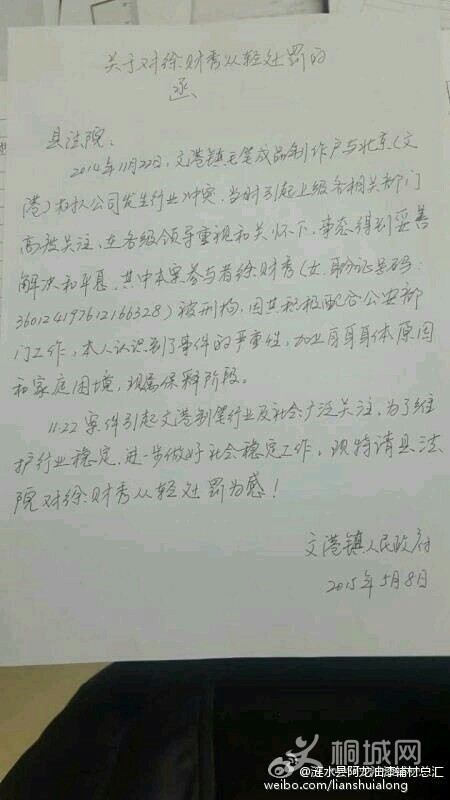 关于对徐财秀从轻处罚的
函
县法院:
2014年11月22日,文港镇毛笔成品制作户与北京(文
港)公司发生行业冲突,当时引起上级各相关部门
高度关注,在各级领导重视和关怀下,事态得到妥善
解决和平息。其中本案参与者徐财秀(女,身份证号码:
360124197612166328)被刑拘,因其积极配合公安部
门工作,本人认识到了事件的严重性,加上自身身体原因
和家庭困境,现属保释阶段。
11.22案件引起文港制笔行业及社会广泛关注,为了维
护行业稳定,进一步做好社会稳定工作,现特请县法
院对徐财秀从轻处罚为感!
文港镇人民政府
2015年5月8日
桐城网
@涟水县阿龙油漆辅材总汇
weibo.com/lianshuialong